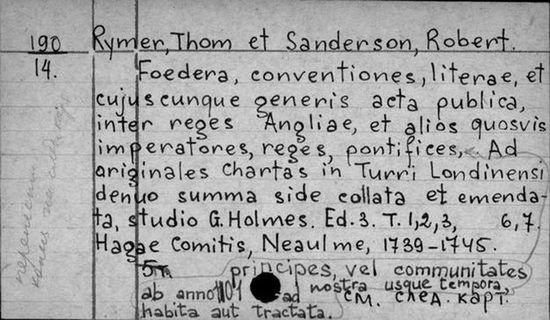 190
14.
Rymer, Thom et Sanderson, Robert.
Foedera, conventiones, literae, et
cujuscunque generis acta publica,
inter reges Angliae, et alios quosvis
imperatores, reges, pontifices, Ad
originales Chartas in Turri Londinensi
denuo summa side collata et emenda-
ta, studio G. Holmes. Ed. 3. T. 1, 2, 3, 6, 7.
Hagae Comitis, Neaulme, 1739-1745.
principes, vel communitates
ab anno 1101 ad nostra usque tempora,
habita aut tractata.
См. след. карт.